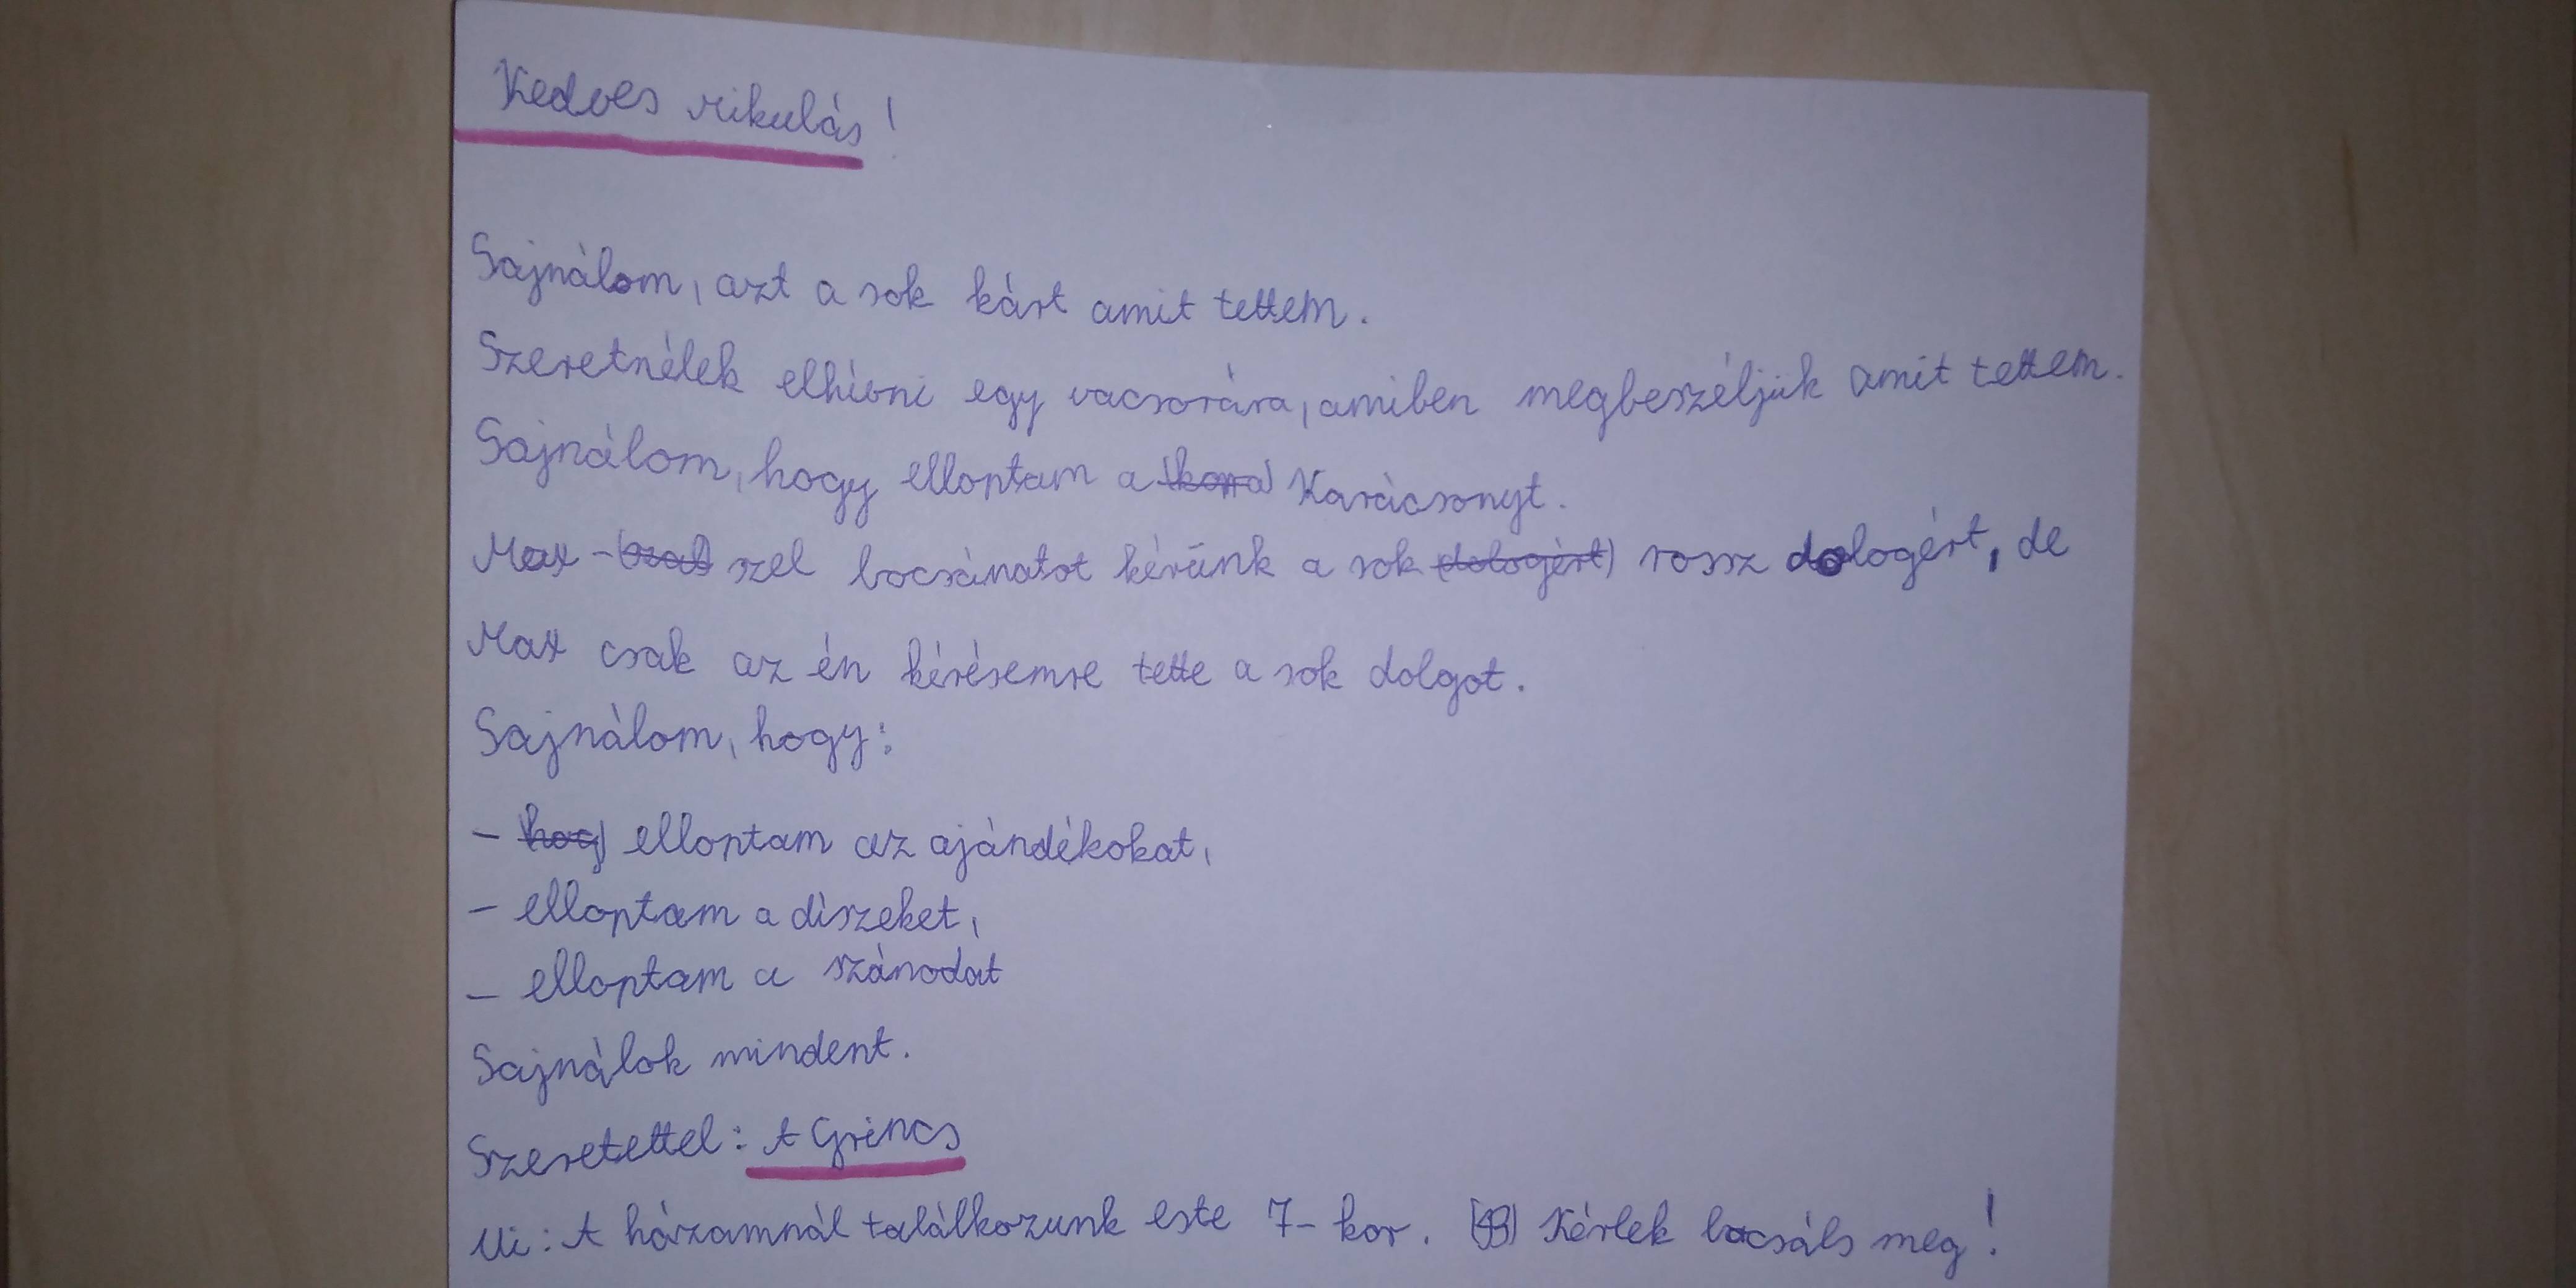 Kedves Mikulás!
Sajnálom, azt a sok kárt amit tettem.
Szeretnélek elhívni egy vacsorára, amiben megbeszéljük amit tettem.
Sajnálom, hogy elloptam a Karácsonyt.
Max - szel bocsánatot kérünk a sok (dologért) rossz dologért, de
Max csak az én kérésemre tette a sok dolgot.
Sajnálom, hogy:
- (hog) elloptam az ajándékokat,
- elloptam a díszeket,
- elloptam a szánodat
Sajnálok mindent.
Szeretettel: A Grincs
Ui: A házamnál találkozunk este 7-kor. Kérlek bocsáls meg!